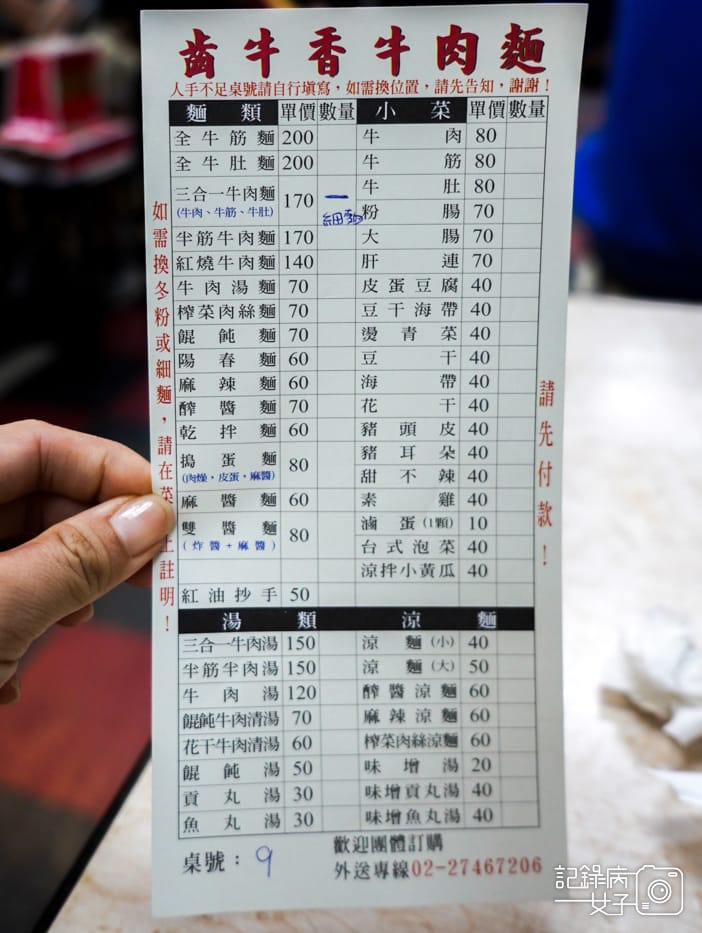 齒牛香牛肉麵
人手不足桌號請自行填寫，如需換位置，請先告知，謝謝！
麵類 單價 數量 小菜 單價 數量
全牛筋麵 200 牛肉 80
全牛肚麵 200 牛筋 80
三合一牛肉麵 170 一 牛肚 80
(牛肉、牛筋、牛肚) 細麵 粉腸 70
半筋牛肉麵 170 大腸 70
紅燒牛肉麵 140 肝連 70
牛肉湯麵 70 皮蛋豆腐 40
榨菜肉絲麵 70 豆干海帶 40
餛飩麵 70 燙青菜 40
陽春麵 60 豆干 40
麻辣麵 60 海帶 40
醡醬麵 70 花干 40
乾拌麵 60 豬頭皮 40
搗蛋麵 80 豬耳朵 40
(肉燥，皮蛋，麻醬) 甜不辣 40
麻醬麵 60 素雞 40
雙醬麵 80 滷蛋(1顆) 10
(炸醬+麻醬) 台式泡菜 40
涼拌小黃瓜 40
紅油抄手 50
湯類 涼麵
三合一牛肉湯 150 涼麵(小) 40
半筋半肉湯 150 涼麵(大) 50
牛肉湯 120 醡醬涼麵 60
餛飩牛肉清湯 70 麻辣涼麵 60
花干牛肉清湯 60 榨菜肉絲涼麵 60
餛飩湯 50 味增湯 20
貢丸湯 30 味增貢丸湯 40
魚丸湯 30 味增魚丸湯 40
桌號：9 歡迎團體訂購
外送專線02-27467206
如需換冬粉或細麵，請在菜上註明！
請先付款！
記錄病女子